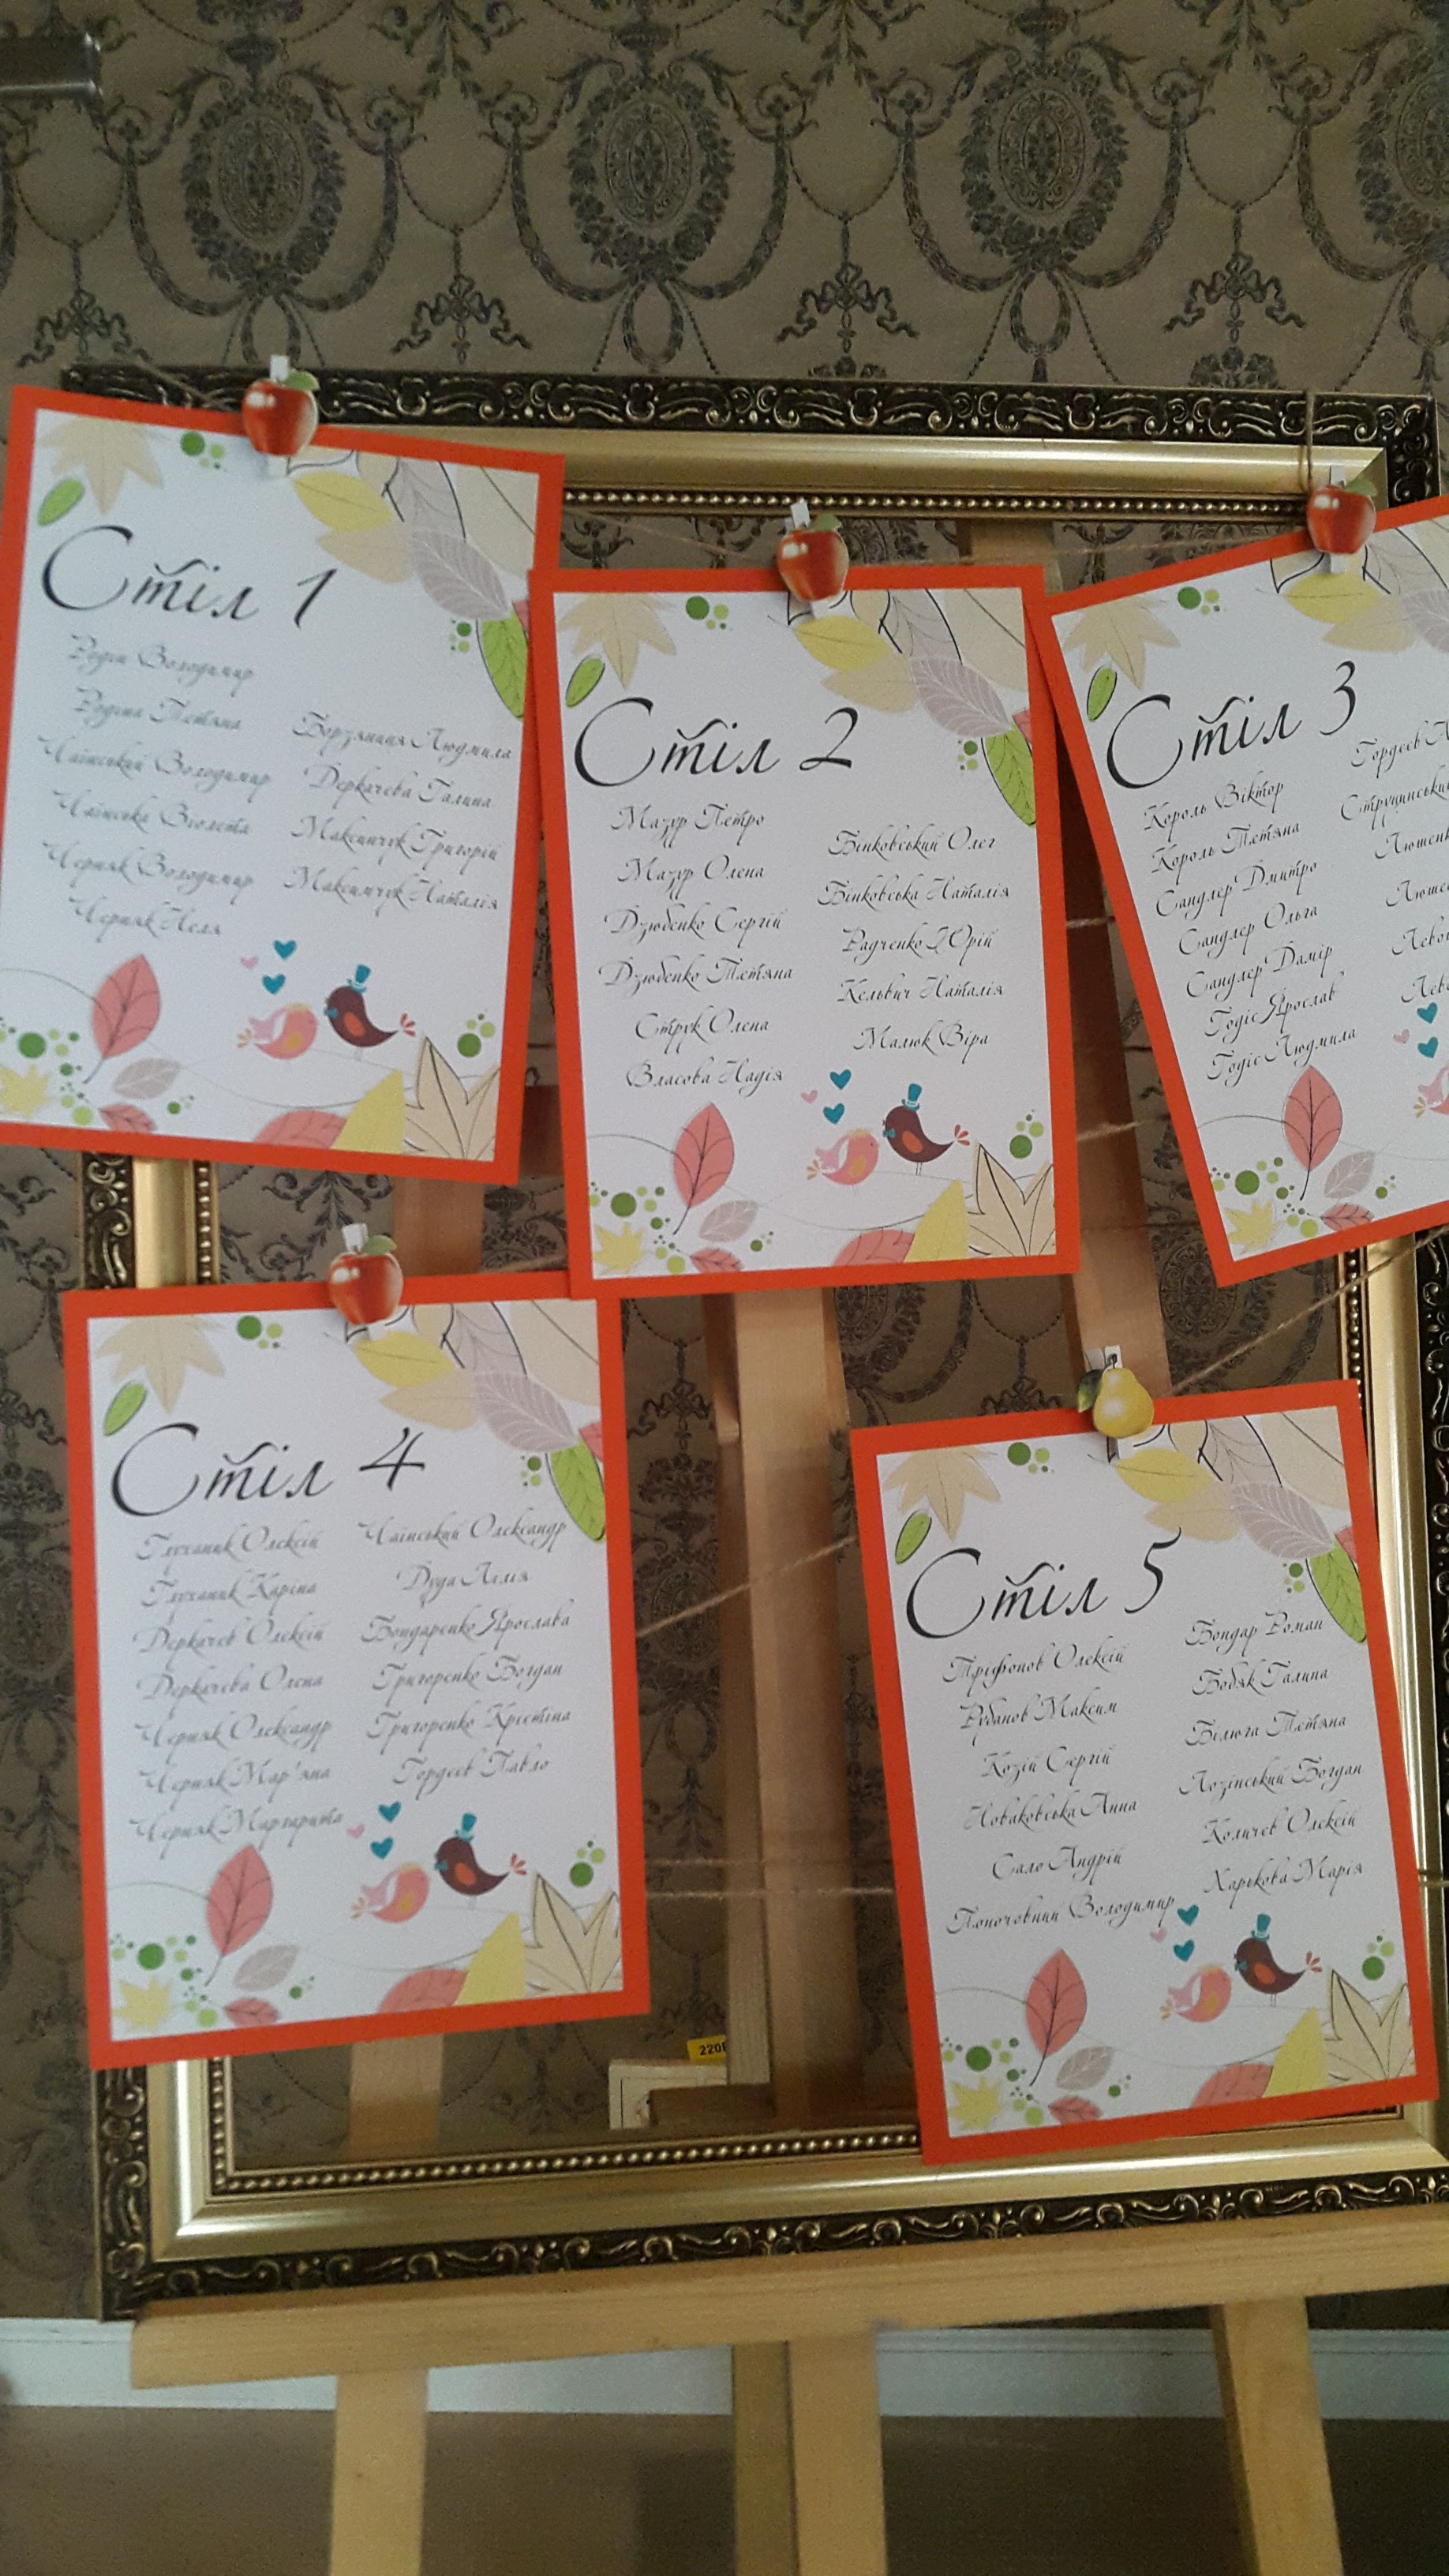 Стіл 1
Родін Володимир
Родіна Тетяна
Чаінський Володимир
Чаінська Віолета
Черняк Володимир
Черняк Неля
Людмила
Деркачева Галина
Максимчук Григорій
Максимчук Наталія
Стіл 2
Мазур Петро
Мазур Олена
Дзюбенко Сергій
Дзюбенко Тетяна
Струк Олена
Власова Надія
Бінковський Олег
Бінковська Наталія
Радченко Юрій
Кельвич Наталія
Малюк Віра
Стіл 3
Король Віктор
Король Тетяна
Сандлер Дмитро
Сандлер Ольга
Сандлер Дамір
Годіс Ярослав
Годіс Людмила
Гордеев
Стіл 4
Глуханик Олексій
Глуханик Каріна
Деркачев Олексій
Деркачева Олена
Черняк Олександр
Черняк Мар'яна
Черняк Маргарита
Чаінський Олександр
Дуда Лілія
Бондаренко Ярослава
Григоренко Богдан
Григоренко Крістіна
Гордеев Павло
Стіл 5
Тріфонов Олексій
Рубанов Максим
Козій Сергій
Новаковська Анна
Сало Андрій
Поночовний Володимир
Бондар Роман
Бобяк Галина
Білюга Тетяна
Лозінський Богдан
Количев Олексій
Харькова Марія